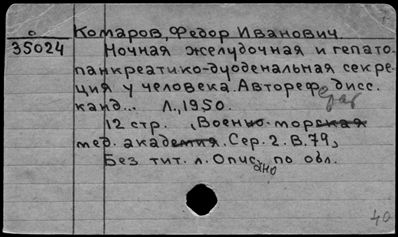 Комаров, Федор Иванович.
35024
Ночная желудочная и гепато-
панкреатико-дуоденальная секре-
ция у человека. Автореферат дисс.
канд... Л., 1950.
12 стр. (Военно-морская
мед. академия. Сер. 2. В. 79)
Без тит. л. Описано по обл.
40